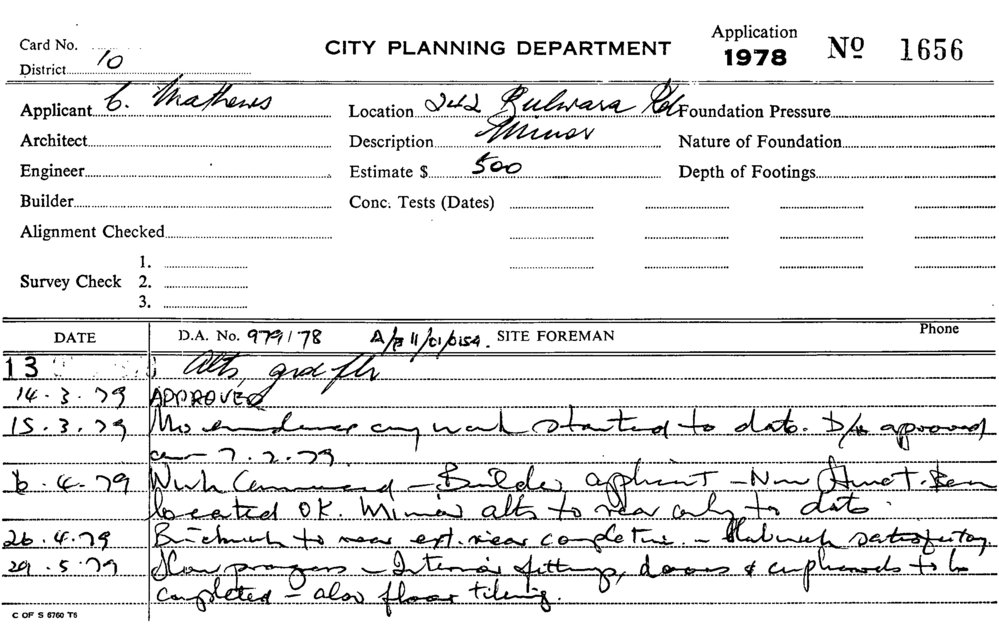 Card No.
CITY PLANNING DEPARTMENT
Application 1978 Nº 1656
District 10
Applicant C. Mathews Location 242 Bulwara Rd Foundation Pressure
Architect Description Minor Nature of Foundation
Engineer Estimate $ 500 Depth of Footings
Builder Conc. Tests (Dates)
Alignment Checked
1.
Survey Check 2.
3.
DATE D.A. No. 979/78 SITE FOREMAN Phone
13 Alts, grd flr
14.3.79 APPROVED
15.3.79 No evidence any work started to date. D/A approved
on 7.2.79.
6.4.79 Work Commenced - Builder applicant - New Struct. Beam
located OK. Minor alts to rear only to date.
26.4.79 Brickwork to rear ext. near completion. - satisfactory
29.5.79 Slow progress - Interior fittings, doors & cupboards to be
completed - also floor tiling.
C OF S 6760 T6